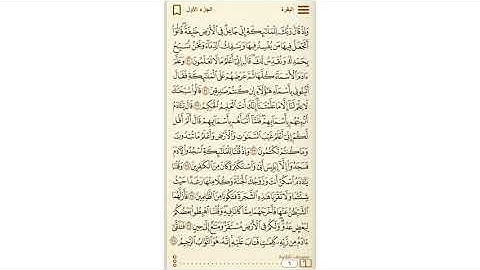 البقرة
الجزء الأول
وَإِذْ قَالَ رَبُّكَ لِلْمَلَٰٓئِكَةِ إِنِّي جَاعِلٌ فِي ٱلْأَرْضِ خَلِيفَةً قَالُوٓا۟
أَتَجْعَلُ فِيهَا مَن يُفْسِدُ فِيهَا وَيَسْفِكُ ٱلدِّمَآءَ وَنَحْنُ نُسَبِّحُ
بِحَمْدِكَ وَنُقَدِّسُ لَكَ قَالَ إِنِّيٓ أَعْلَمُ مَا لَا تَعْلَمُونَ ٣٠ وَعَلَّمَ
ءَادَمَ ٱلْأَسْمَآءَ كُلَّهَا ثُمَّ عَرَضَهُمْ عَلَى ٱلْمَلَٰٓئِكَةِ فَقَالَ
أَنۢبِـُٔونِي بِأَسْمَآءِ هَٰٓؤُلَآءِ إِن كُنتُمْ صَٰدِقِينَ ٣١ قَالُوا۟ سُبْحَٰنَكَ
لَا عِلْمَ لَنَآ إِلَّا مَا عَلَّمْتَنَآ إِنَّكَ أَنتَ ٱلْعَلِيمُ ٱلْحَكِيمُ ٣٢ قَالَ يَٰٓـَٔادَمُ
أَنۢبِئْهُم بِأَسْمَآئِهِمْ فَلَمَّآ أَنۢبَأَهُم بِأَسْمَآئِهِمْ قَالَ أَلَمْ أَقُل
لَّكُمْ إِنِّيٓ أَعْلَمُ غَيْبَ ٱلسَّمَٰوَٰتِ وَٱلْأَرْضِ وَأَعْلَمُ مَا تُبْدُونَ
وَمَا كُنتُمْ تَكْتُمُونَ ٣٣ وَإِذْ قُلْنَا لِلْمَلَٰٓئِكَةِ ٱسْجُدُوا۟ لِءَادَمَ
فَسَجَدُوٓا۟ إِلَّآ إِبْلِيسَ أَبَىٰ وَٱسْتَكْبَرَ وَكَانَ مِنَ ٱلْكَٰفِرِينَ ٣٤ وَقُلْنَا
يَٰٓـَٔادَمُ ٱسْكُنْ أَنتَ وَزَوْجُكَ ٱلْجَنَّةَ وَكُلَا مِنْهَا رَغَدًا حَيْثُ
شِئْتُمَا وَلَا تَقْرَبَا هَٰذِهِ ٱلشَّجَرَةَ فَتَكُونَا مِنَ ٱلظَّٰلِمِينَ ٣٥ فَأَزَلَّهُمَا
ٱلشَّيْطَٰنُ عَنْهَا فَأَخْرَجَهُمَا مِمَّا كَانَا فِيهِ وَقُلْنَا ٱهْبِطُوا۟ بَعْضُكُمْ
لِبَعْضٍ عَدُوٌّ وَلَكُمْ فِي ٱلْأَرْضِ مُسْتَقَرٌّ وَمَتَٰعٌ إِلَىٰ حِينٍ ٣٦ فَتَلَقَّىٰٓ
ءَادَمُ مِن رَّبِّهِۦ كَلِمَٰتٍ فَتَابَ عَلَيْهِ إِنَّهُۥ هُوَ ٱلتَّوَّابُ ٱلرَّحِيمُ ٣٧
٦